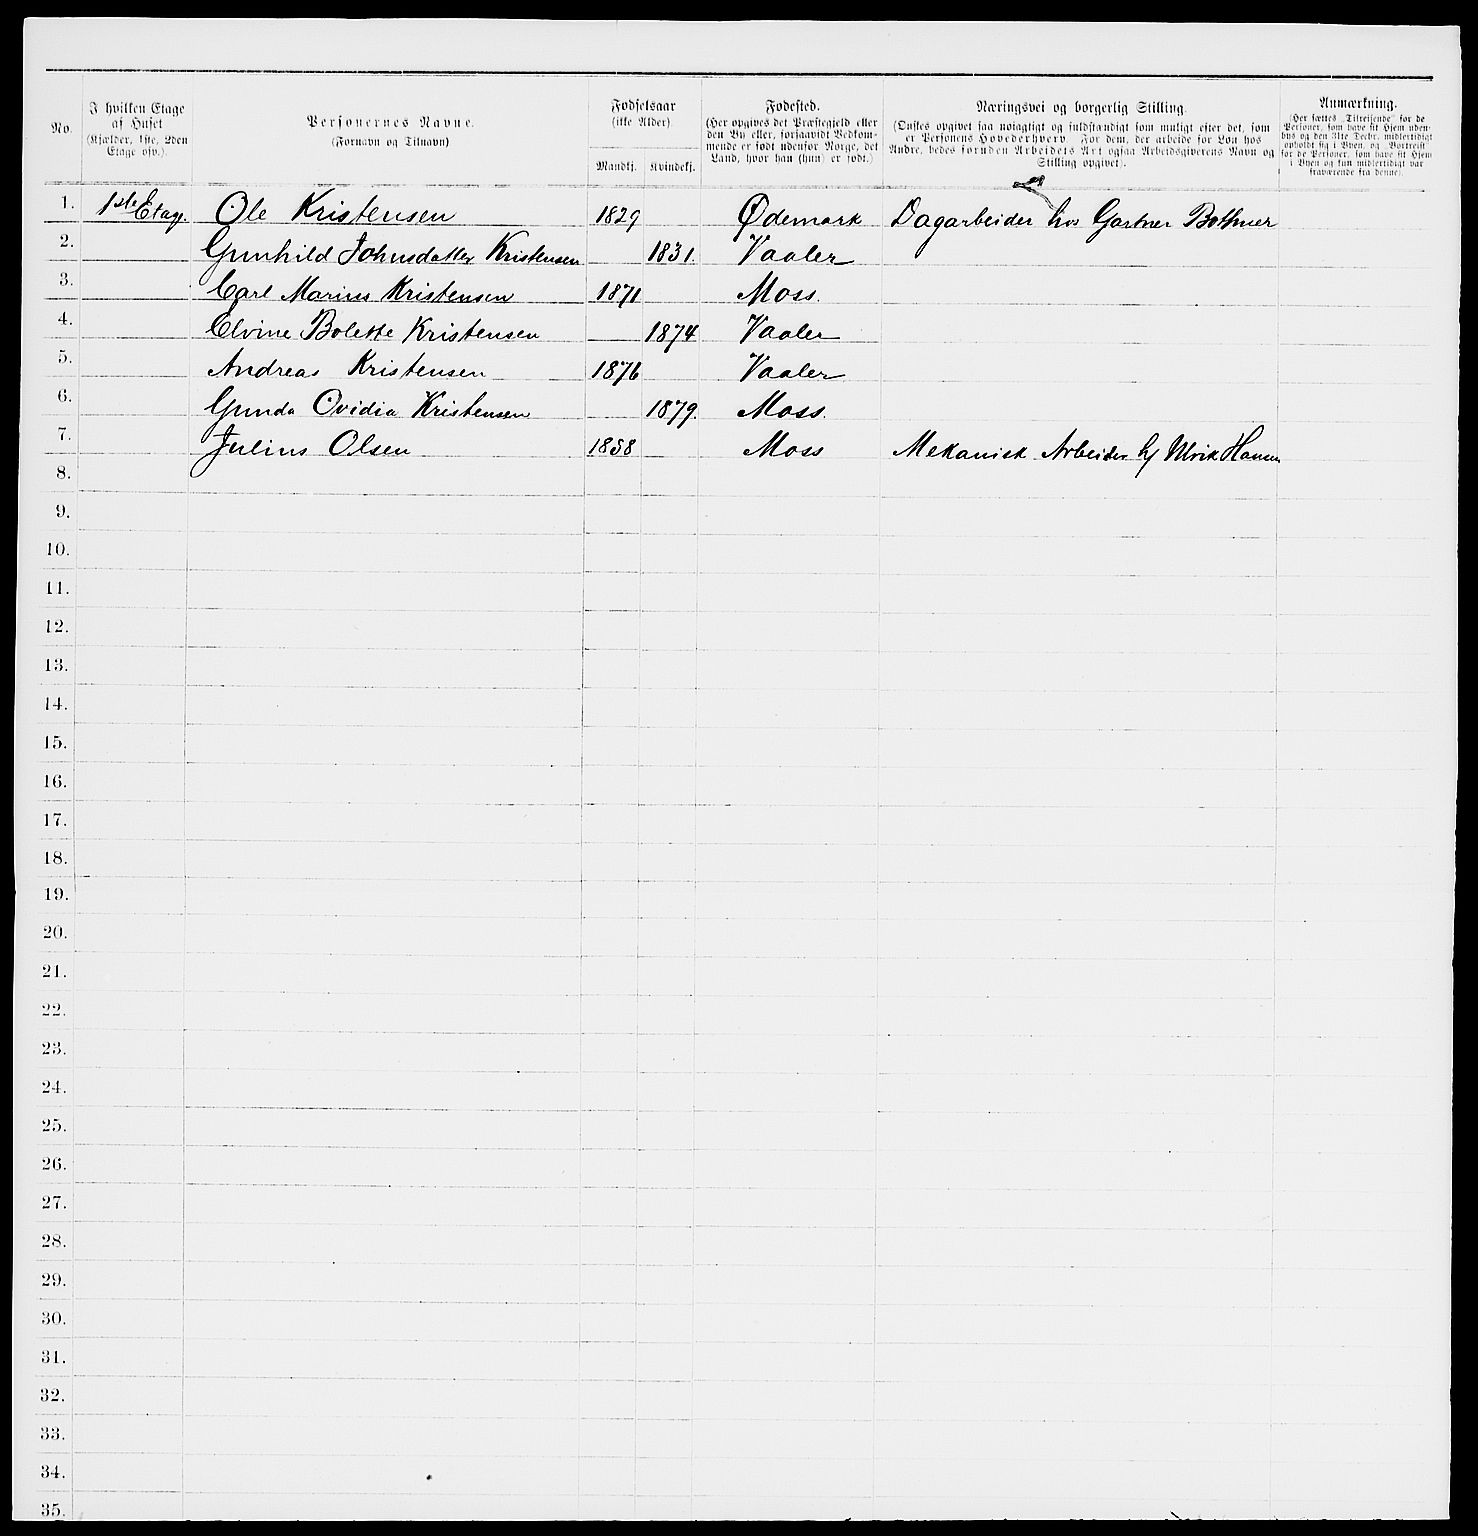 No.
I hvilken Etage
af Huset
(Kjælder, 1ste, 2den
Etage osv.).
Personernes Navne.
(Fornavn og Tilnavn)
Fødselsaar
(ikke Alder).
Mandkj. Kvindekj.
Fødested.
(Her opgives det Præstegjeld eller
den By eller, forsaavidt Vedkom-
mende er født udenfor Norge, det
Land, hvor han (hun) er født.)
Næringsvei og borgerlig Stilling.
(Ønskes opgivet saa nøiagtigt og fuldstændigt som muligt efter det, som
er Personens Hovederhverv. For dem, der arbeide for Løn hos
Andre, bedes foruden Arbeidets Art ogsaa Arbeidsgiverens Navn og
Stilling opgivet).
Anmærkning.
(Her sættes „Tilreisende" for de
Personer, som have sit Hjem uden-
bys og den 31te Decbr. midlertidigt
opholdt sig i Byen, og „Bortreist"
for de Personer, som have sit Hjem
i Byen og kun midlertidigt var
fraværende fra denne).
1. 1ste Etag. Ole Kristensen 1829 Ødemark Dagarbeider hos Gartner Bothner
2. Gunhild Johnsdatter Kristensen 1831. Vaaler
3. Carl Marius Kristensen 1871 Moss.
4. Elvine Bolette Kristensen 1874 Vaaler
5. Andreas Kristensen 1876 Vaaler
6. Gunda Ovidia Kristensen 1879. Moss.
7. Julius Olsen 1858 Moss Mekanisk Arbeider h/ Ulrik Hansen
8.
9.
10.
11.
12.
13.
14.
15.
16.
17.
18.
19.
20.
21.
22.
23.
24.
25.
26.
27.
28.
29.
30.
31.
32.
33.
34.
35.